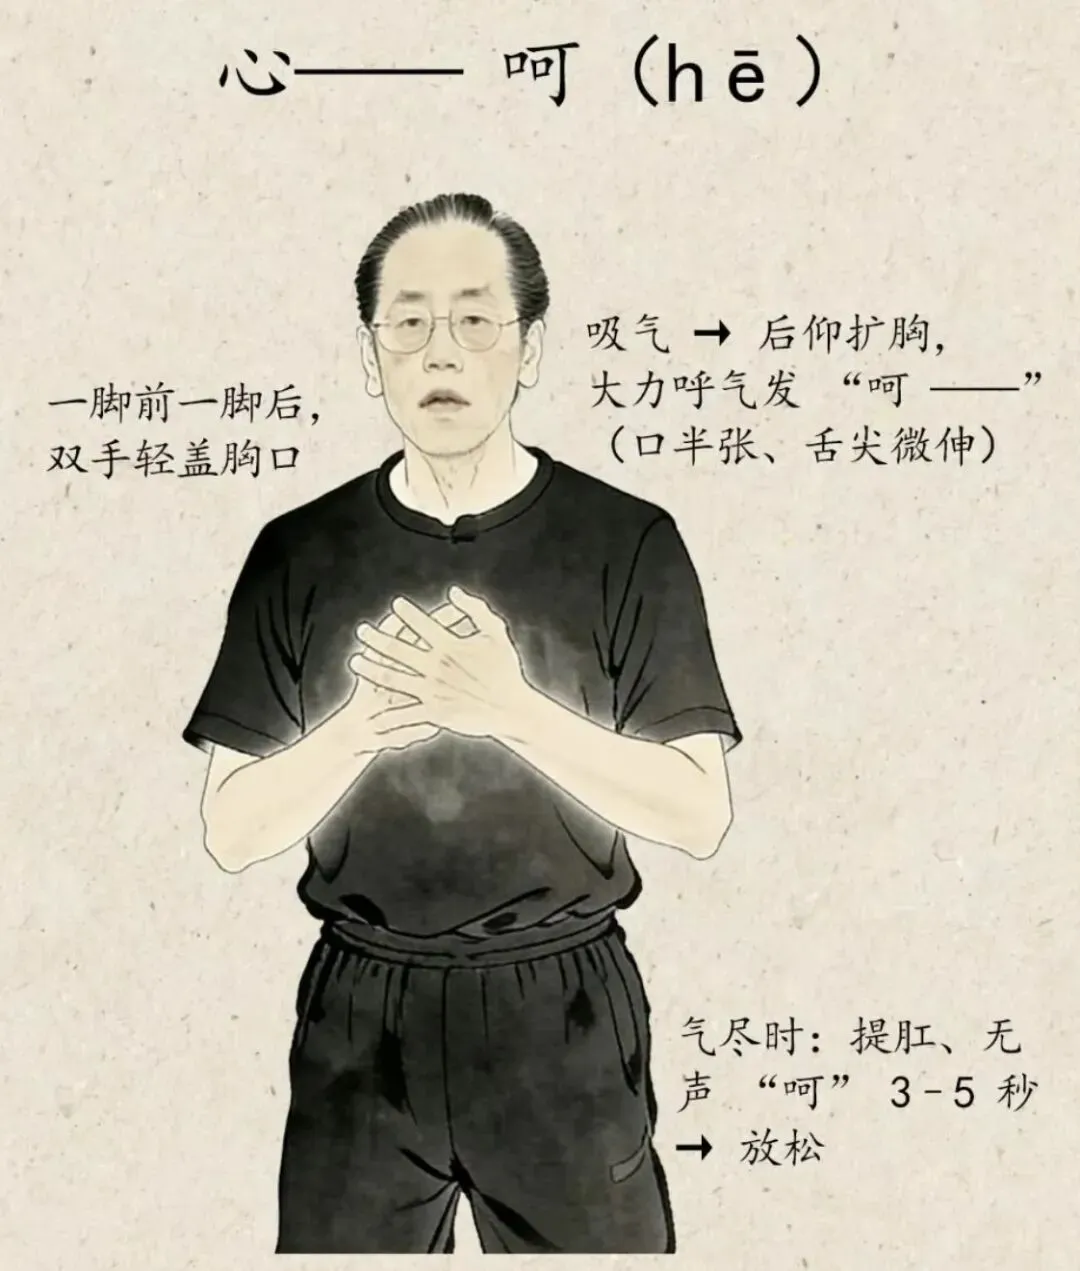 心—— 呵（hē）
一脚前一脚后，
双手轻盖胸口
吸气 → 后仰扩胸，
大力呼气发 “呵 ——”
（口半张、舌尖微伸）
气尽时：提肛、无
声 “呵” 3-5 秒
→ 放松